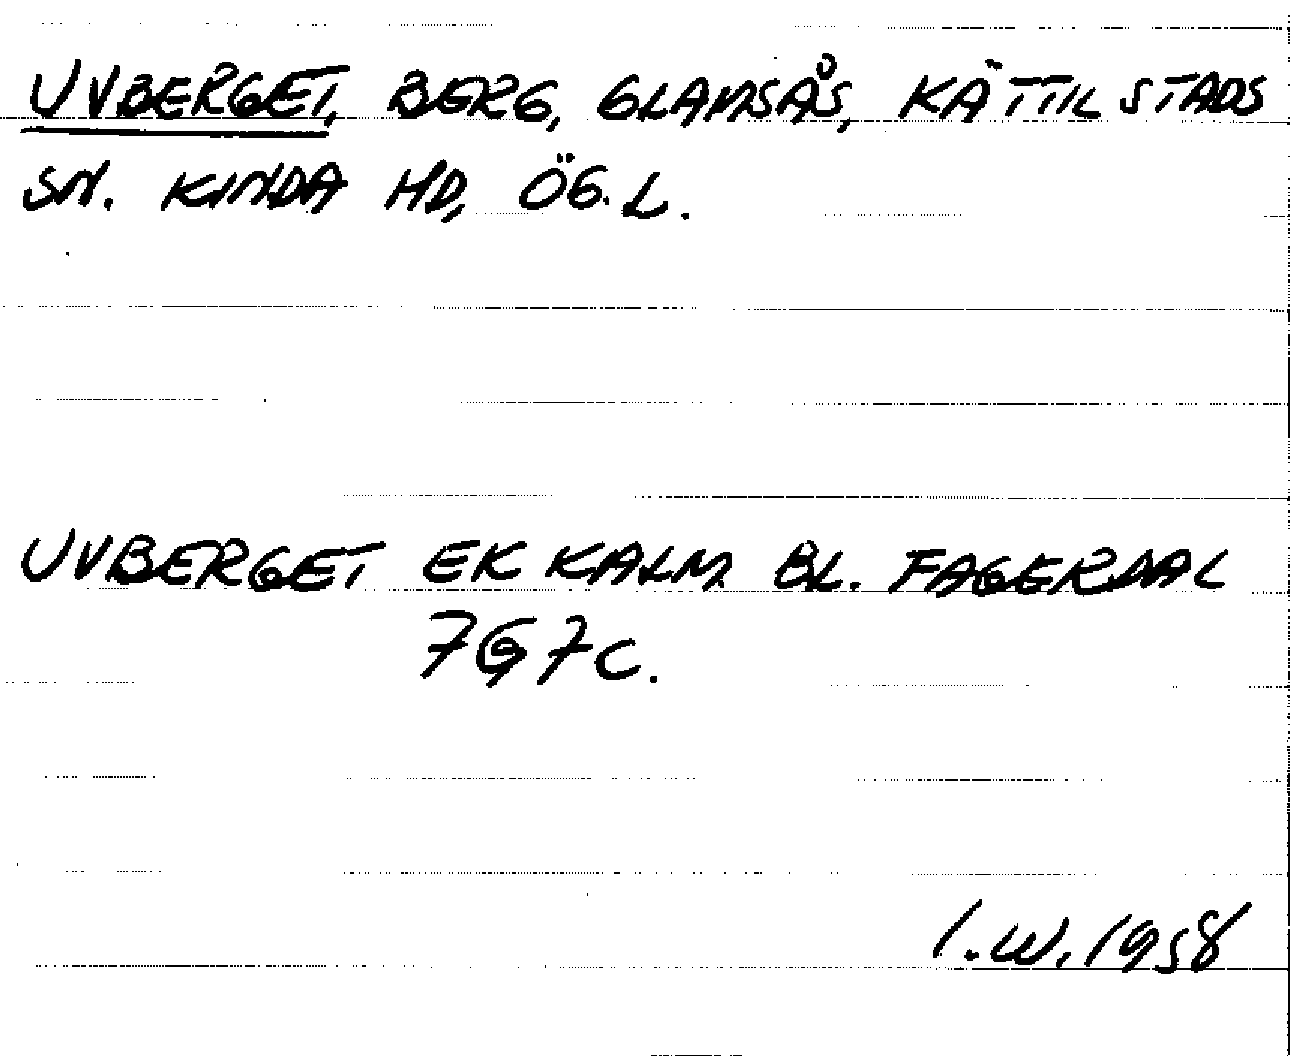 UVBERGET, BERG, GLAMSÅS, KÄTTILSTADS
SN. KINDA HD, ÖG.L.
UVBERGET EK KALM. BL. FAGERDAL
7G7c.
I.W. 1958